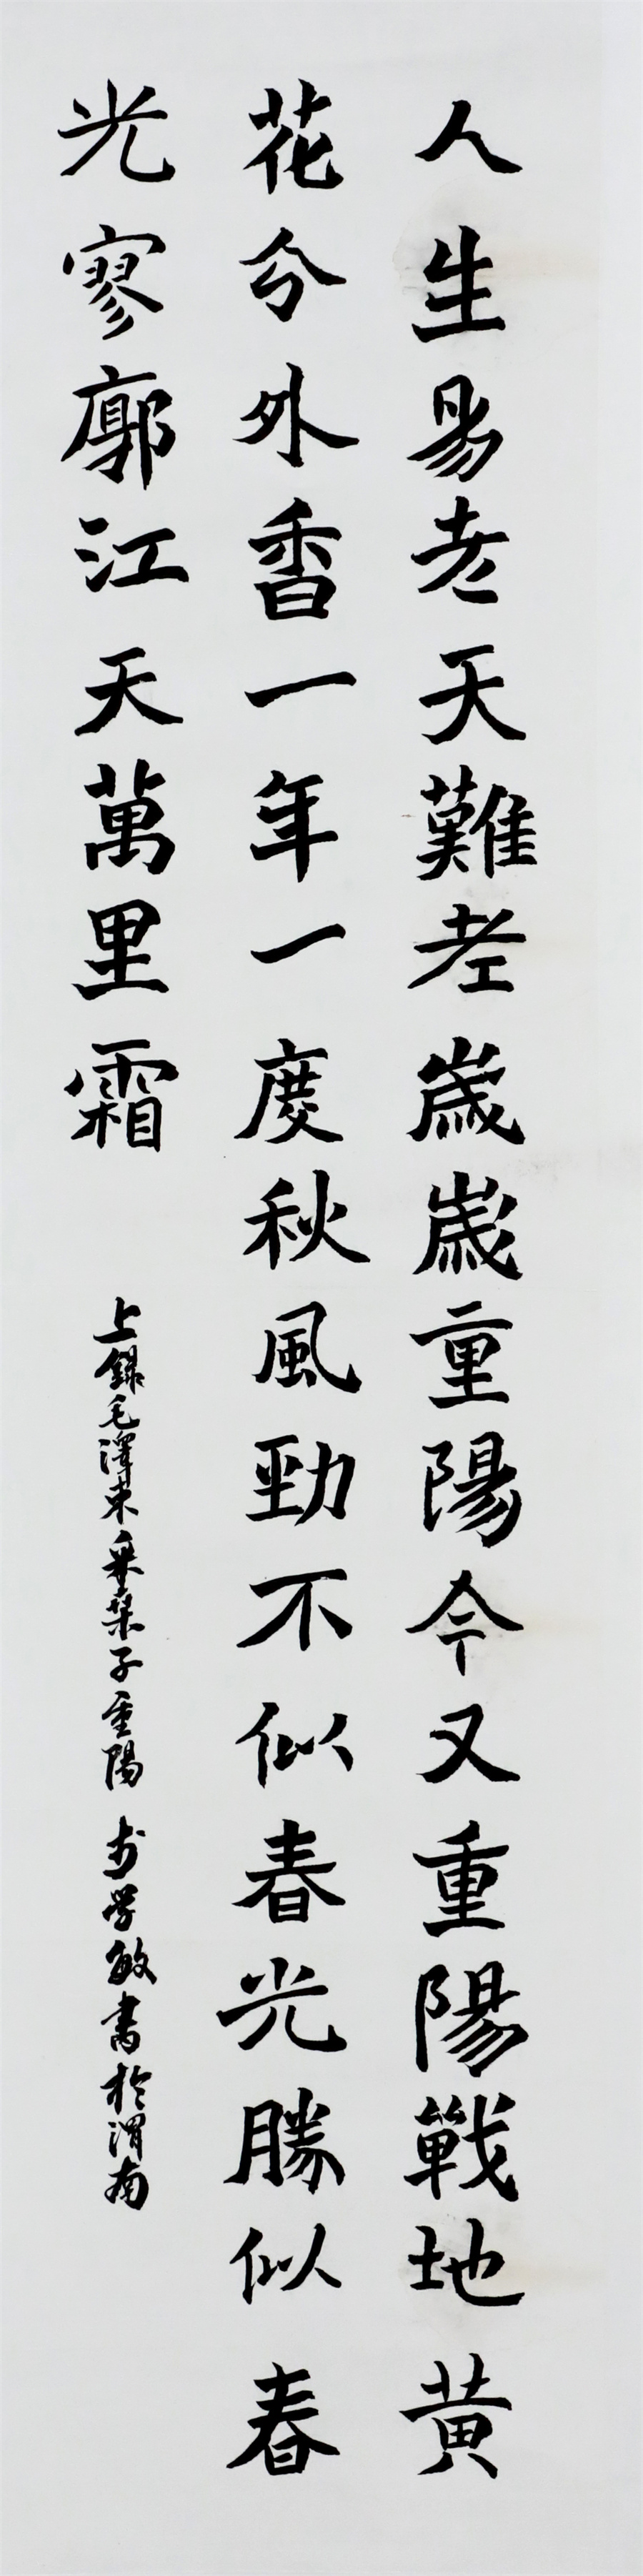 人生易老天難老歲歲重陽今又重陽戰地黄
花分外香一年一度秋風勁不似春光勝似春
光寥廓江天萬里霜
上錄毛澤東采桑子重陽 学敏書於渭南